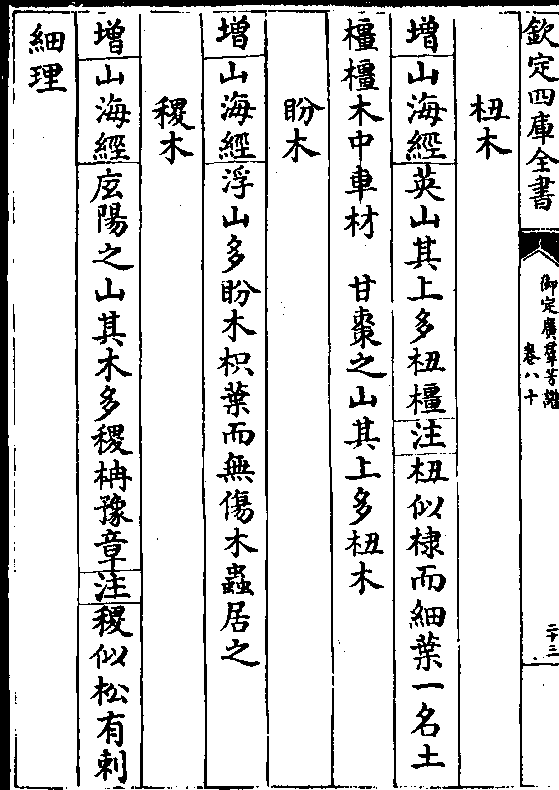 欽定四庫全書
御定廣羣芳譜
卷八十
二十三
杻木
增山海經英山其上多杻橿注杻似棣而細葉一名土
橿橿木中車材 甘棗之山其上多杻木
盼木
增山海經浮山多盼木枳葉而無傷木蟲居之
稷木
增山海經厷陽之山其木多稷柟豫章注稷似松有刺
細理